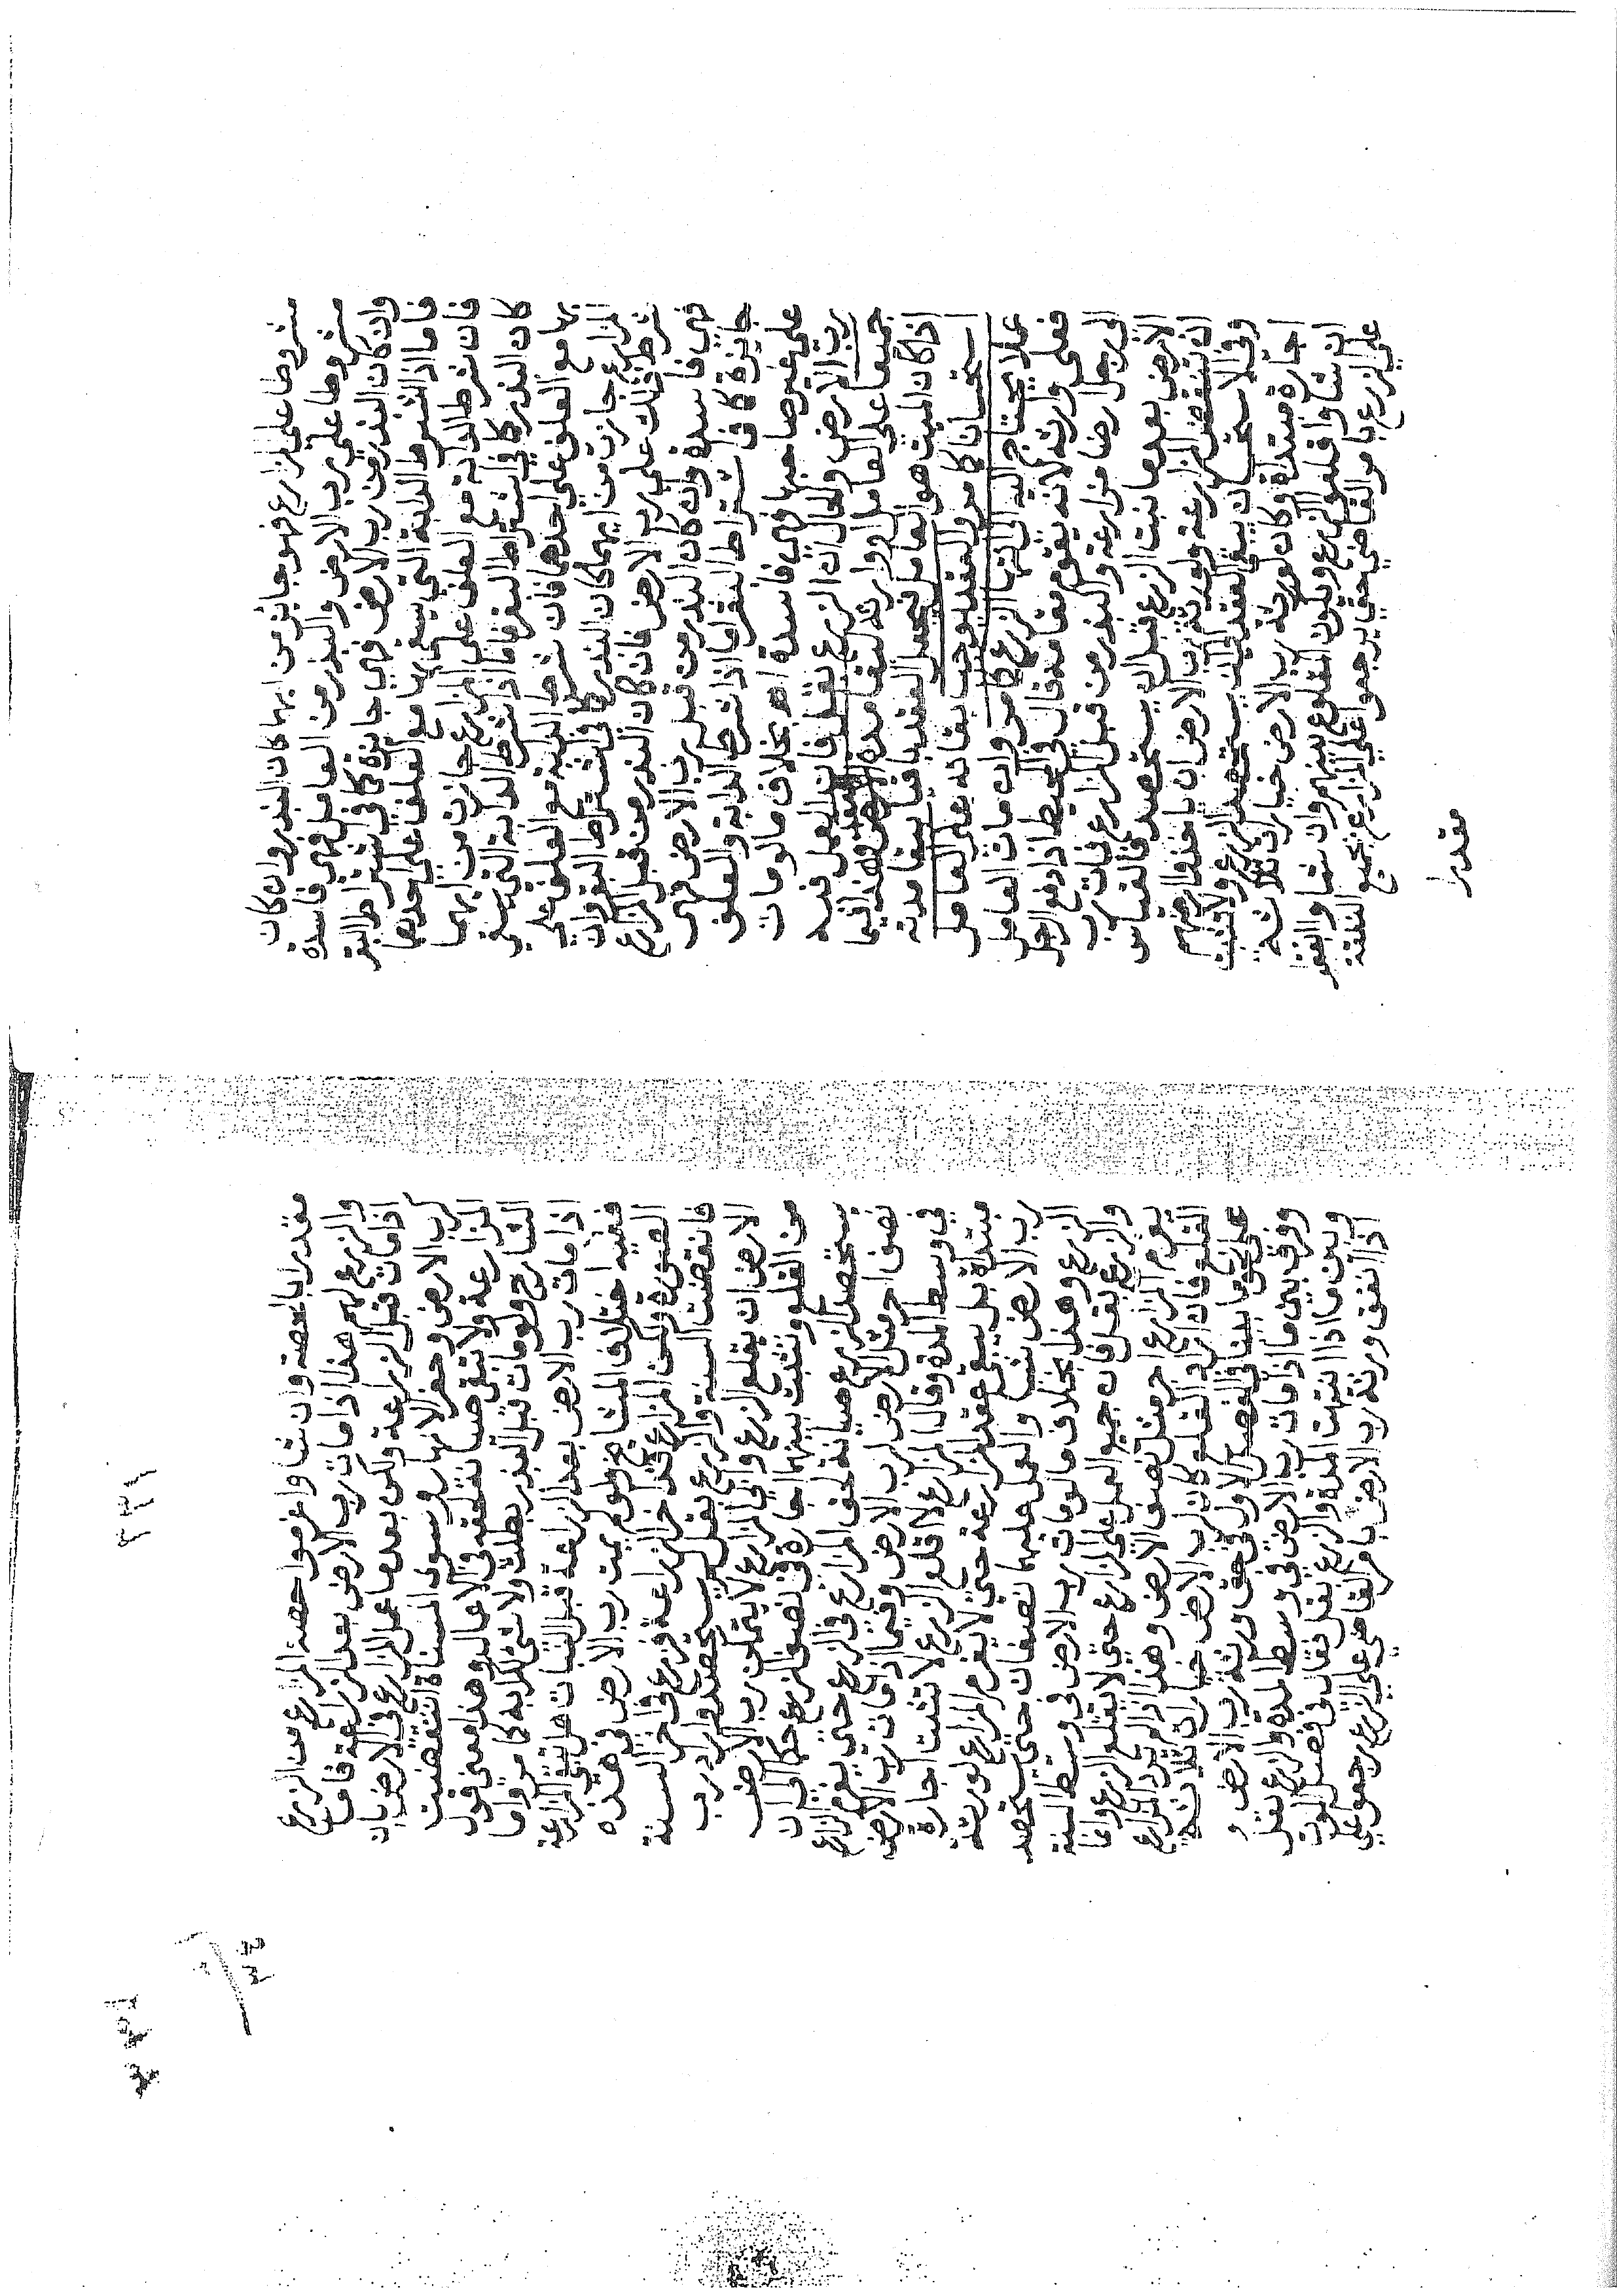 مشروطا على المزارع فهو جايز من ايهما كان البذر وان كان
مشروطا على رب الارض والبذر من العامل فهي فاسدة
وان كان البذر من رب الارض فهي جايزة كما في اشتراط البقر
فاما اذا اشترط الدابة التي يسقي بها مع العلف على احدهما
فان شرط الدابة مع العلف على المزارع جازت من ايهما
كان البذر كما في اشتراط البقر فاما اذا شرط الدابة التي يسقي
بها مع العلف على احدهما فان شرط الدابة مع العلف على
المزارع جازت من ايهما كان البذر كما في اشتراط البقر وان
شرط ذلك على رب الارض فان كان البذر من قبل المزارع
فهي فاسدة وان كان البذر من قبل رب الارض فهي
جايزة كما في اشتراط البقر اما اذا شرط الدابة والعلف
على غير صاحبها فهي فاسدة اه بخلاف ما لو مات
رب الارض والحال ان الزرع بقل فان العمل فيه
جميعا على العامل او وارثه لبقا مدة العقد وهذا فيما
اذا كان الميت هو العامل فيجعل العقد باقيا ببقا مدته
استحسانا كما مر والعقد يوجب بقاله على العامل
عملا يحتاج اليه الى انتها الزرع كما مر وان مات العامل
فعلى وارثه لانه يقوم مقامه قال في المحيط اذا دفع الرجل
الى رجل ارضا مزارعة والبذر من قبل المزارع فمات رب
الارض بعد ما نبت الزرع قبل ان يستحصد فالقياس
ان تنتقض المزارعة ولورثة رب الارض ان ياخذوا ارضهم
وفي الاستحسان يبقى العقد الى ان يستحصد الزرع ولا تثبت
اجارة مبتدأة وكان لورثة رب الارض خيارات ثلاثة
ان شاوا قلعوا الزرع ويكون المقلوع بينهم وان شاوا انفقوا
على الزرع بامر القاضي حتى يرجعوا على المزارع بجميع النفقة
مقدرا
مقدرا بالحصة وان شاوا غرموا حصة المزارع من الزرع
والزرع لهم هذا اذا مات رب الارض بعد الزراعة فاما
اذا مات قبل الزراعة ولكن بعد ما عمل المزارع في الارض بان
كرب الارض وحفر الانهار وسوى المسناة انتقضت
المزارعة ولا تبقى صيانة لحقه في الاعمال وهذا معنى قول
الشارح ولو مات قبل البذر بطلت ولا شي لكرابه كما مر واما
اذا مات رب الارض بعد الزراعة قبل النبات هل تبقى المزارعة
ففيه اختلاف المشايخ ولو لم يمت رب الارض في هذه
الصورة ولكن المزارع قد اخر الزراعة فزرع في اخر السنة
فانقضت السنة والزرع بقل لم يستحصد واراد رب
الارض ان يقلع الزرع وابى المزارع لا يتمكن رب الارض
من القلع وتثبت بينهما اجارة في نصف الزرع حكما الى ان
يستحصد الزرع صيانة لحق المزارع في الزرع حتى يغرم المزارع
نصف اجر مثل الارض لرب الارض وفيما اذا مات رب الارض
في وسط المدة وقال المزارع لا اقلع الزرع لا تثبت اجارة
مبتدأة بل يبقى عقد المزارعة حتى لا يغرم المزارع لورثة
رب الارض شيا والعمل عليهما نصفان حتى يستحصد
الزرع وهذا بخلاف ما لو مات رب الارض في وسط السنة
والزرع بقل فان جميع العمل على المزارع حتى لا يقلع الزرع وانما
يغرم المزارع اجر مثل نصف الارض وهذا اذا لم يرد المزارع
القلع فان اراد القلع كان لرب الارض خيارات ثلاثة
على نحو ما بينا في الفصل الاول في حق ورثة رب الارض و
وفرق بين ما اذا مات رب الارض في وسط المدة والزرع بقل
وبين ما اذا انتهت المدة والزرع بقل فقال في فصل الموت
اذا انفق ورثة رب الارض بامر القاضي على الزرع رجعوا على